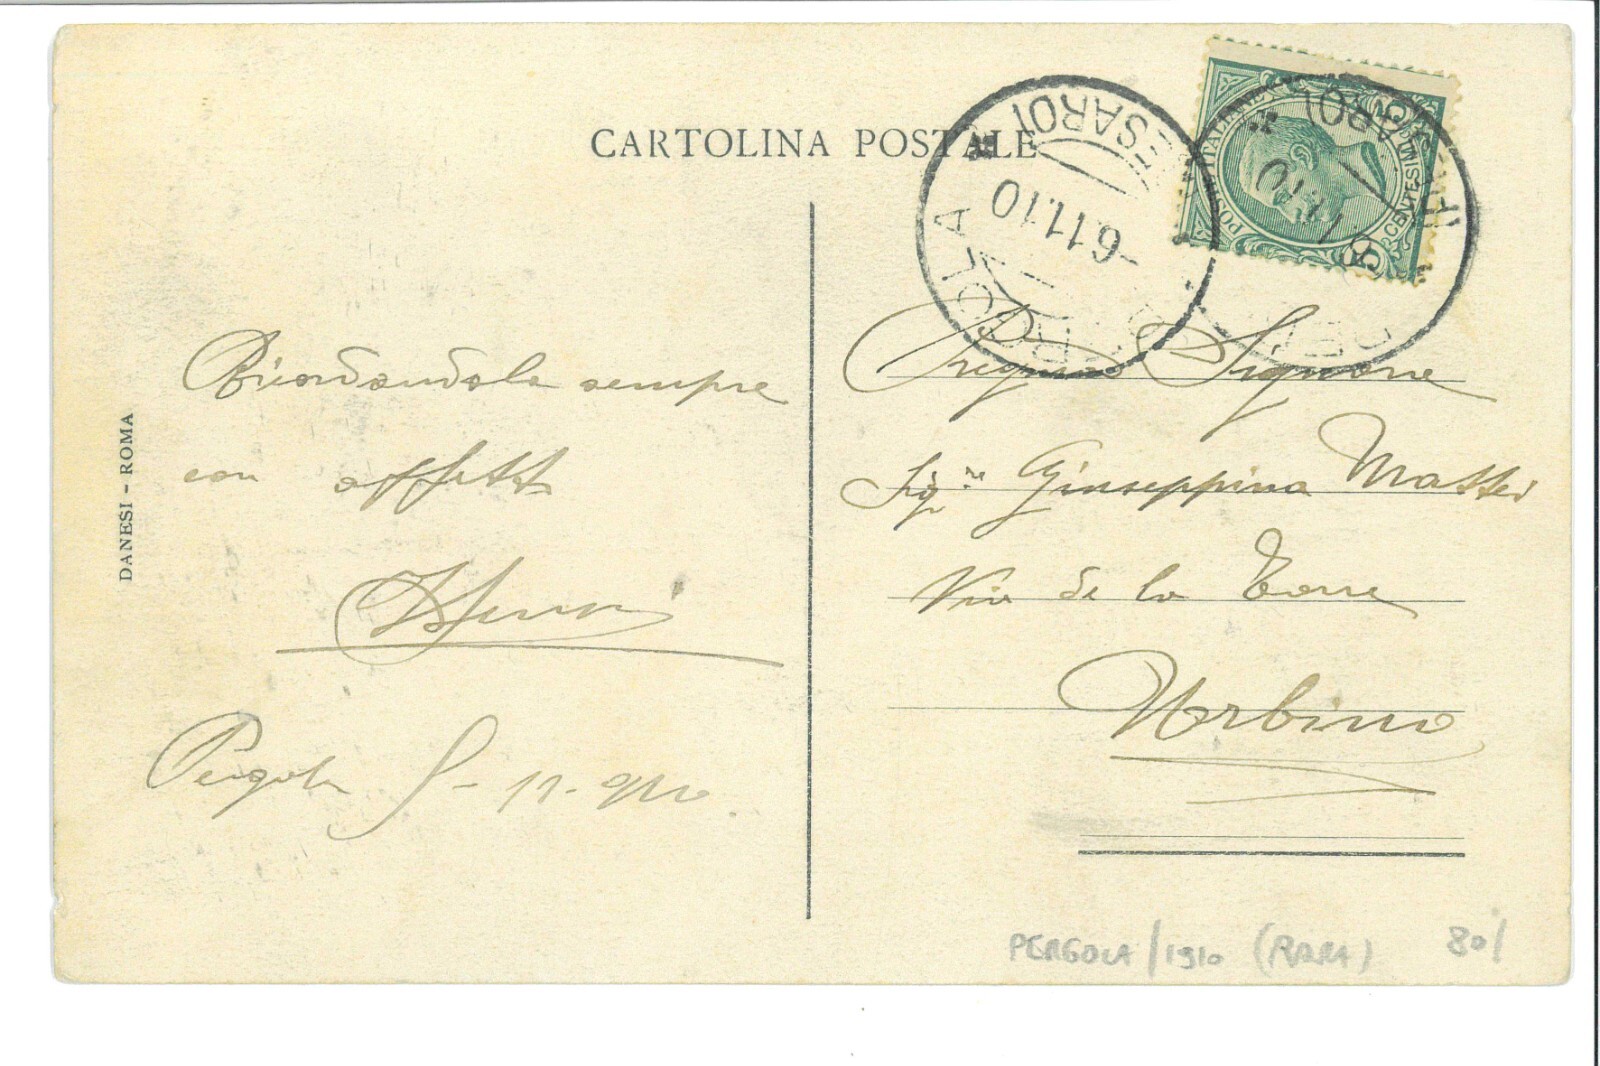 CARTOLINA POSTALE
PERGOLA
(PESARO)
-6.11.10
POSTE ITALIANE
CENTESIMI
Ricordandola sempre
con affetto
Pergola 5-11-910
Signore
Sig.re Giuseppina Mattei
Via de la Torre
Urbino
DANESI - ROMA
PERGOLA/1910 (RARA) 80/